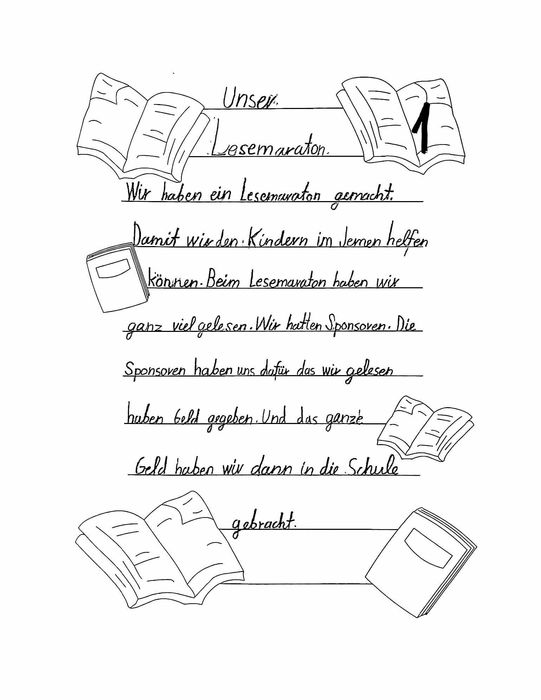 Unser
1
Lesemaraton.
Wir haben ein Lesemaraton gemacht.
Damit wir den Kindern im Jemen helfen
können. Beim Lesemaraton haben wir
ganz viel gelesen. Wir hatten Sponsoren. Die
Sponsoren haben uns dafür das wir gelesen
haben Geld gegeben. Und das ganze
Geld haben wir dann in die Schule
gebracht.